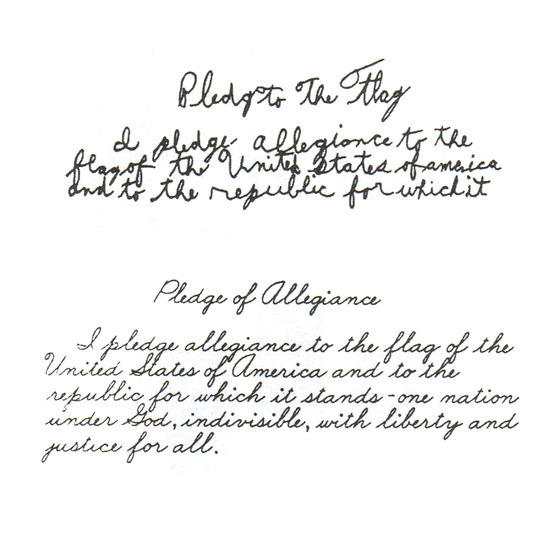 Pledg to The Flag
I pledge allegiance to the
flag of the United States of america
and to the republic for which it
Pledge of Allegiance
I pledge allegiance to the flag of the
United States of America and to the
republic for which it stands - one nation
under God, indivisible, with liberty and
justice for all.